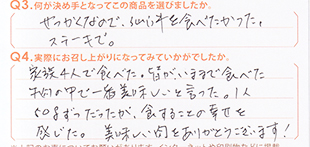 Q3.何が決め手となってこの商品を選びましたか。
ぜっかくなので、仙台牛を食べたかった。
ステーキで。
Q4.実際にお召し上がりになってみていかがでしたか。
家族4人で食べた。皆がいままで食べた
肉の中で一番美味しいと言った。1人
50gずつだったが、食することの幸せを
感じた。美味しい肉をありがとうございます!